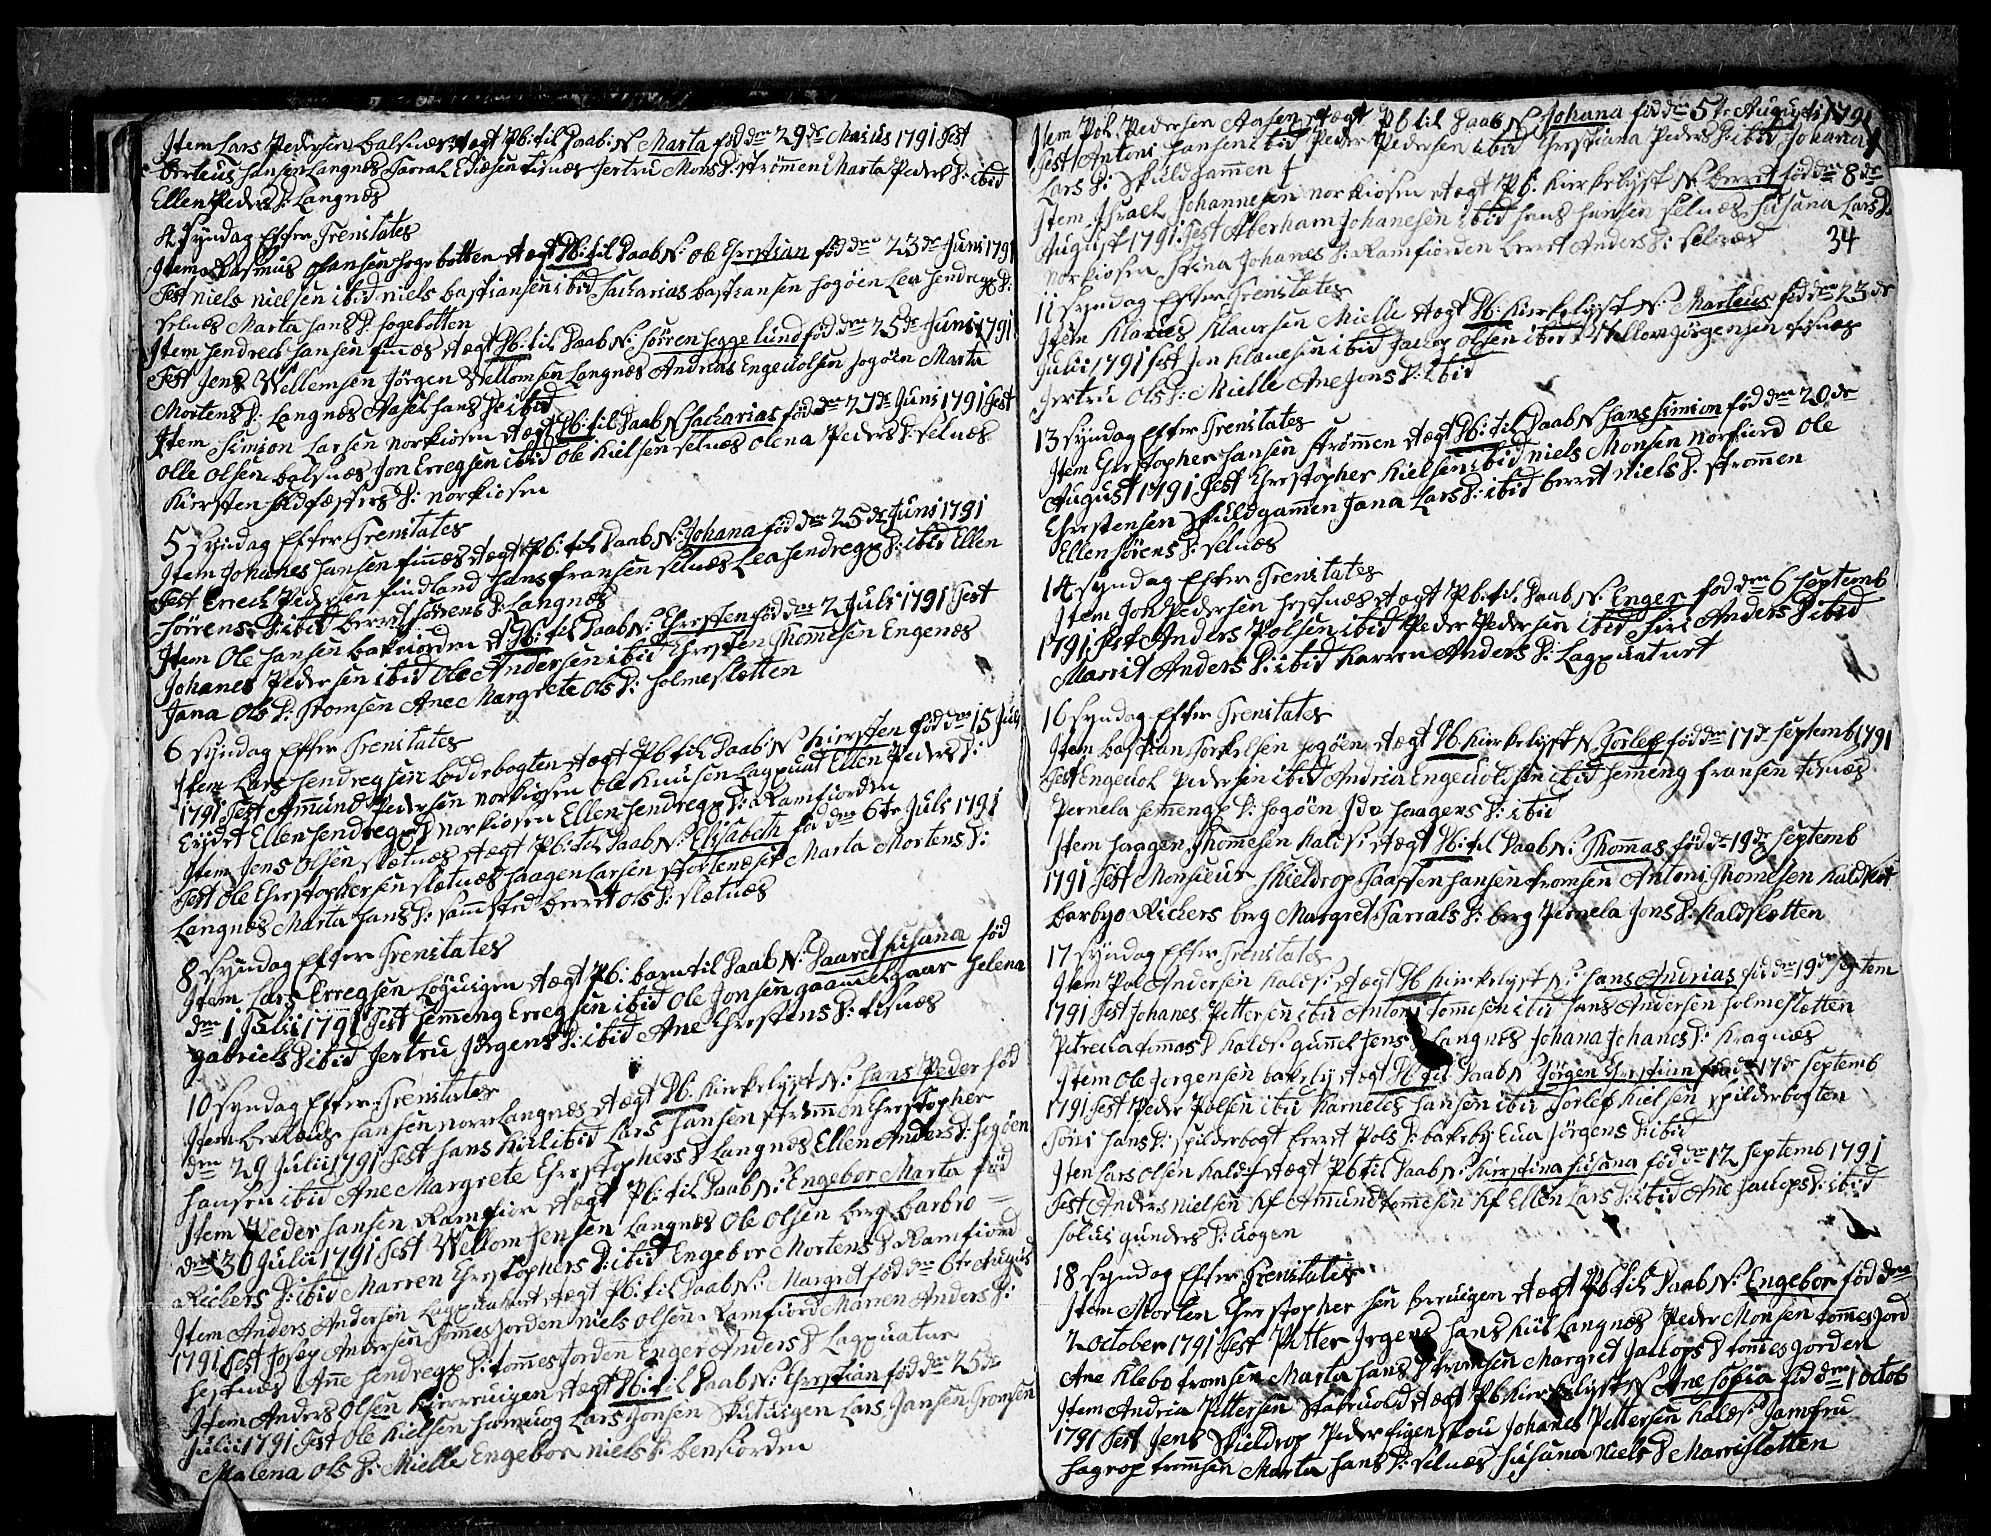 Item Lars Pedersen balsnæs ægt Pb: til Daab N Marta fød den 29de Maius 1791 Test
berteus Hansen Langnæs Jertru Mons D: strømen Marta Peders D: ibid
Ellen Peders D: Langnæs
4 Syndag Efter Trenitates
Item Rasmus Hansen Sogebotten ægt Pb: til Daab N: Ole Chrestian fød den 23de Juni 1791
Test niels nielsen ibid niels bastiansen ibid Sacharias bastiansen Sogøen Lea Hendregs D:
selnæs Marta Hans D: Sogebotten
Item Hendrech Hansen finæs ægt Pb: til Daab N: Sørren Hegge lund fød den 25de Juni 1791
Test Jens Wellemsen Jørgen Wellomsen Langnæs Andrias Engeuolsen Sogøen Marta
Mortens D: Langnæs Aasel Hans D: ibid
Item Simion Larsen norkiosen ægt Pb: til Daab N Sacharias fød den 27de Juni 1791 Test
olle olsen balsnæs Jon Erregsen ibid Ole Kielsen selnæs Olena Peders D: selnæs
Kiersten D: norkiosen
5 Syndag Efter Trenitates
Item Johanes Hansen finnæs ægt Pb: til Daab N: Johana fød den 25de Juni 1791
Test Errech Pedersen findland Hans fransen selnæs Lea Hendregs D: ibid Ellen
Sørrens D: ibid berret Sørens D: Langnæs
Item Ole Hansen bakiorden ægt Pb: til Daab N: Chresten fød den 2 Juli 1791 Test
Johanes Pedersen ibid Ole Andersen ibid Chresten Thommesen Engenæs
Jana Ols D: Tromsen Ane Margrete Ols D: Holmeslætten
6 Syndag Efter Trenitates
Item Lars Hendregsen Loddebogten ægt Pb til Daab N Kiersten fød den 15 Juli
1791 Test Amund Pedersen norkiosen Ole Knudsen Lagpuat Ellen Peders D:
Ellen Hendregs D norkiosen Ellen Hendregs D: Ramfiorden
Item Jens Olsen slætnæs ægt Pb: til Daab N: Elisabeth fød den 6te Juli 1791
Test Ole Chrestophersen slætnæs Haagen Larsen stortenæset Marta Mortens D:
Langnæs Marta Hans D: berret Ols D: slætnæs
8 Syndag Efter Trenitates
Item Lars Erregsen Løguigen ægt Pb: barn til Daab N: Daaret Susana fød
den 1 Julii 1791 Test Hemmeng Erregsen ibid Ole Jonsen gaamelgaar Helena
gabriels D ibid Jertru Jørgens D: ibid Ane Chrestens D: tisnæs
10 Syndag Efter Trenitates
Item berteus Hansen norr Langnæs ægt Pb: Kirkelyst N: Hans Peder fød
den 29 Julii 1791 Test Hans Kiil ibid Lars Hansen strømmen Chrestopher
Hansen ibid Ane Margrete Chrestophers D Langnæs Ellen Anders D: Sogøen
Item Peder Hansen Ramfior ægt Pb: til Daab N: Engebor Marta fød
den 30 Julii 1791 Test Wellom Jensen Langnæs Ole Olsen berg barbro
Rickers D: ibid Marren Chrestophers D: ibid Engebor Mortens D Ramfiord
Item Anders Andersen Lagpuaturt ægt Pb: til Daab N: Margret fød den 6te Augus
1791 Test Josep Andersen tomes Jorden niels olsen Ramfiord Marren Anders D:
Hestnæs Ane Hendregs D: tommes Jorden Enger Anders D Lagpuatur
Item Anders Olsen Kierruigen ægt Pb: til Daab N: Chrestian fød den 25de
Julii 1791 Test Ole Kielsen Lars Jonsen Skutuigen Lars Jansen Tromsen
Malena Ols D: Mielle Engebor niels D: bensiorden
Item Pol Pedersen Aasen ægt Pb til Daab N Johana fød den 5te Augusti 1791
Test Antoni Hansen ibid Peder Pedersen ibid Chrestiana Peders D: ibid Johana
Lars D: Skuldgammen
Item Israel Johannesen norkiosen ægt Pb: Kirkelyst N: berret fød den 8de
August 1791 Test Aberham Johanesen ibid Hans Hansen selnæs Susana Lars D:
norkiosen Stina Johanes D: Ramfiorden berret Anders D: selnæs
34
11 Syndag Efter Trenitates
Item Klaues Klauesen Mielle ægt Pb: Kirkelyst N: Marteus fød den 23de
Julii 1791 Test Jon Klauesen ibid Jacop Olsen ibid Wellom Jørgensen tisnæs
Jertru Ols D: Mielle Ane Jens D: ibid
13 Syndag Efter Trenitates
Item Chrestopher Hansen strømen ægt Pb: til Daab N Hans Simion fød den 20de
August 1791 Test Chrestopher Kielsen ibid niels Monsen norfiord Ole
Chrestensen Skuldgammen Jana Lars D: ibid berret Niels D: strømen
Ellen Sørens D: selnæs
14 Syndag Efter Trenitates
Item Joh Pedersen Hestnæs ægt Pb: til Daab N: Enger fød den 6 Septemb
1791 Test Anders Polsen ibid Peder Pedersen ibid Siri Anders D ibid
Marrit Anders D: ibid Karren Anders D: Lagpuaturt
16 Syndag Efter Trenitates
Item bastian Torkelsen Sogøen ægt Pb: Kirkelyst N Torlef fød den 17de Septemb 1791
Test Engeuol Pedersen ibid Andria Engeuolsen ibid Hemeng fransen tisnæs
Pernela Hemengs D: Sogøen Ida Haagens D: ibid
Item Haagen Thomesen Kalds: ægt Pb: til Daab N: Thommas fød d: 19de Septemb
1791 Test Monsieur Skieldrop Taassen Hansen tromsen Antoni Thomesen Kaldslet
barbro Rickers berg Margret Tarrals D: berg Pernela Jons D: Kaldslætten
17 Syndag Efter Trenitates
Item Pol Andersen Kalds: ægt Pb Kirkelyst N: Hans Andrias fød den 19de Septem
1791 Test Johanes Pettersen ibid Antoni Tommesen ibid Hans Andersen Holmeslætten
Petrecka tommas D Kalds: gunnel Jens D: Langnæs Johana Johanes D: Kragnæs
Item Ole Jørgensen bakeby ægt Pb: til Daab N Jørgen Chrestian fød d: 17de Septemb
1791 Test Peder Polsen ibid Karneles Hansen ibid Torlef Kielsen spilderbogten
Siri Hans D: spilderbogt berret Pols D: bakeby Eua Jørgens D: ibid
Iten Lars Olsen Kaldsl ægt Pb til Daab N: Kierstina Susana fød den 12 Septemb 1791
Test Anders nielsen Kf Amund tommesen Kf Ellen Lars D: ibid Ane Jacops D: ibid
solui gunders D: uogen
18 Syndag Efter Trenitates
Item Morten Chrestophersen beruigen ægt Pb til Daab N: Engebor fød den
2 October 1791 Test Petter Jrgens Hans Kiil Langnæs Peder Monsen tommes Jord
Ane Klebo tromsen Marta Hans D tromsen Margret Jacops D tommes Jorden
Item Andria Pettersen Stakuold ægt Pb Kirkelyst N Ane Sopia fød den 1 Octob
1791 Test Jens Skieldrop Peder figenskou Johanes Pettersen Kalds: Jomfru
Hagrop tromsen Marta Hans D: selnæs Susana Niels D Marrislotten